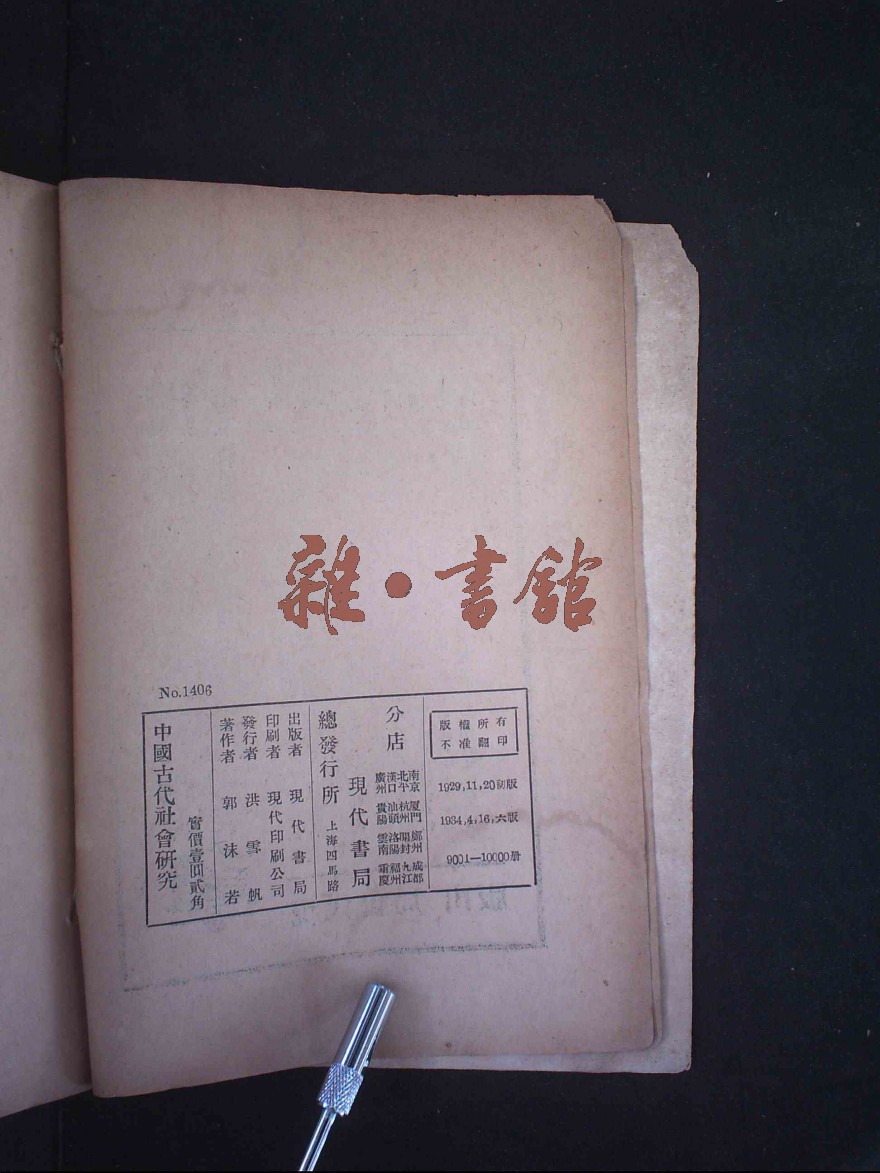 雜·書館
No.1406
版權所有
不准翻印
1929,11,20初版
1934,4,16,六版
9001—10000册
分店
南京 廈門 鄭州 成都
北平 杭州 開封 九江
漢口 汕頭 洛陽 福州
廣州 貴陽 雲南 重慶
現代書局
總發行所 上海四馬路
出版者 現代書局
印刷者 現代印刷公司
發行者 洪雪帆
著作者 郭沫若
實價壹圓貳角
中國古代社會研究